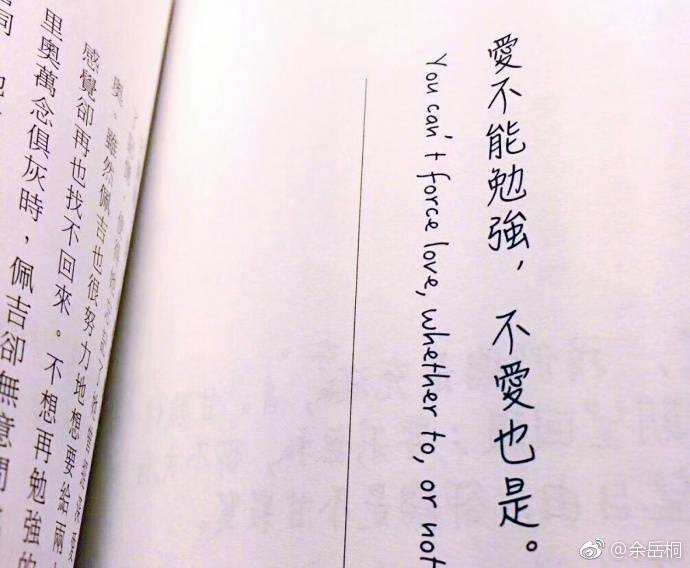 愛不能勉強，不愛也是。
You can't force love, whether to, or not
奧。雖然佩吉也很努力地想要給兩
感覺卻再也找不回來。不想再勉強的
里奧萬念俱灰時，佩吉卻無意間
@余岳桐